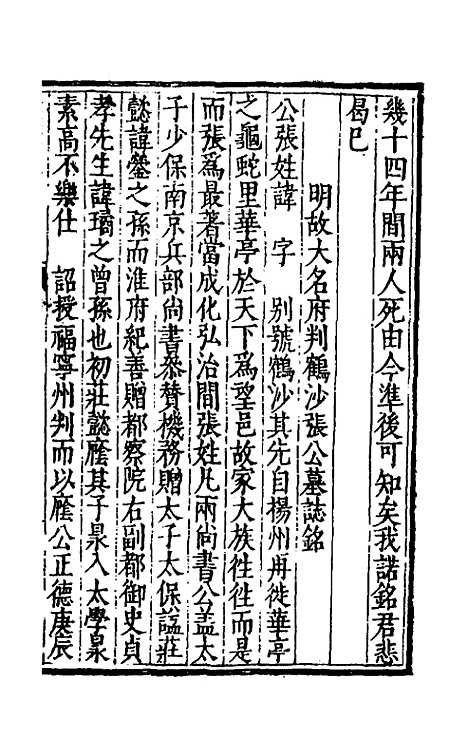 幾十四年間兩人死由今準後可知矣我諾銘君悲
曷已
明故大名府判鶴沙張公墓誌銘
公張姓諱 字 別號鶴沙其先自揚州再徙華亭
之龜蛇里華亭於天下爲望邑故家大族徃徃而是
而張爲最著當成化弘治間張姓凡兩尚書公盖太
子少保南京兵部尚書叅賛機務贈太子太保謚莊
懿諱鎣之孫而淮府紀善贈都察院右副都御史貞
孝先生諱璚之曾孫也初莊懿廕其子㫤入太學㫤
素高不樂仕 詔授福寧州判而以廕公正德庚辰